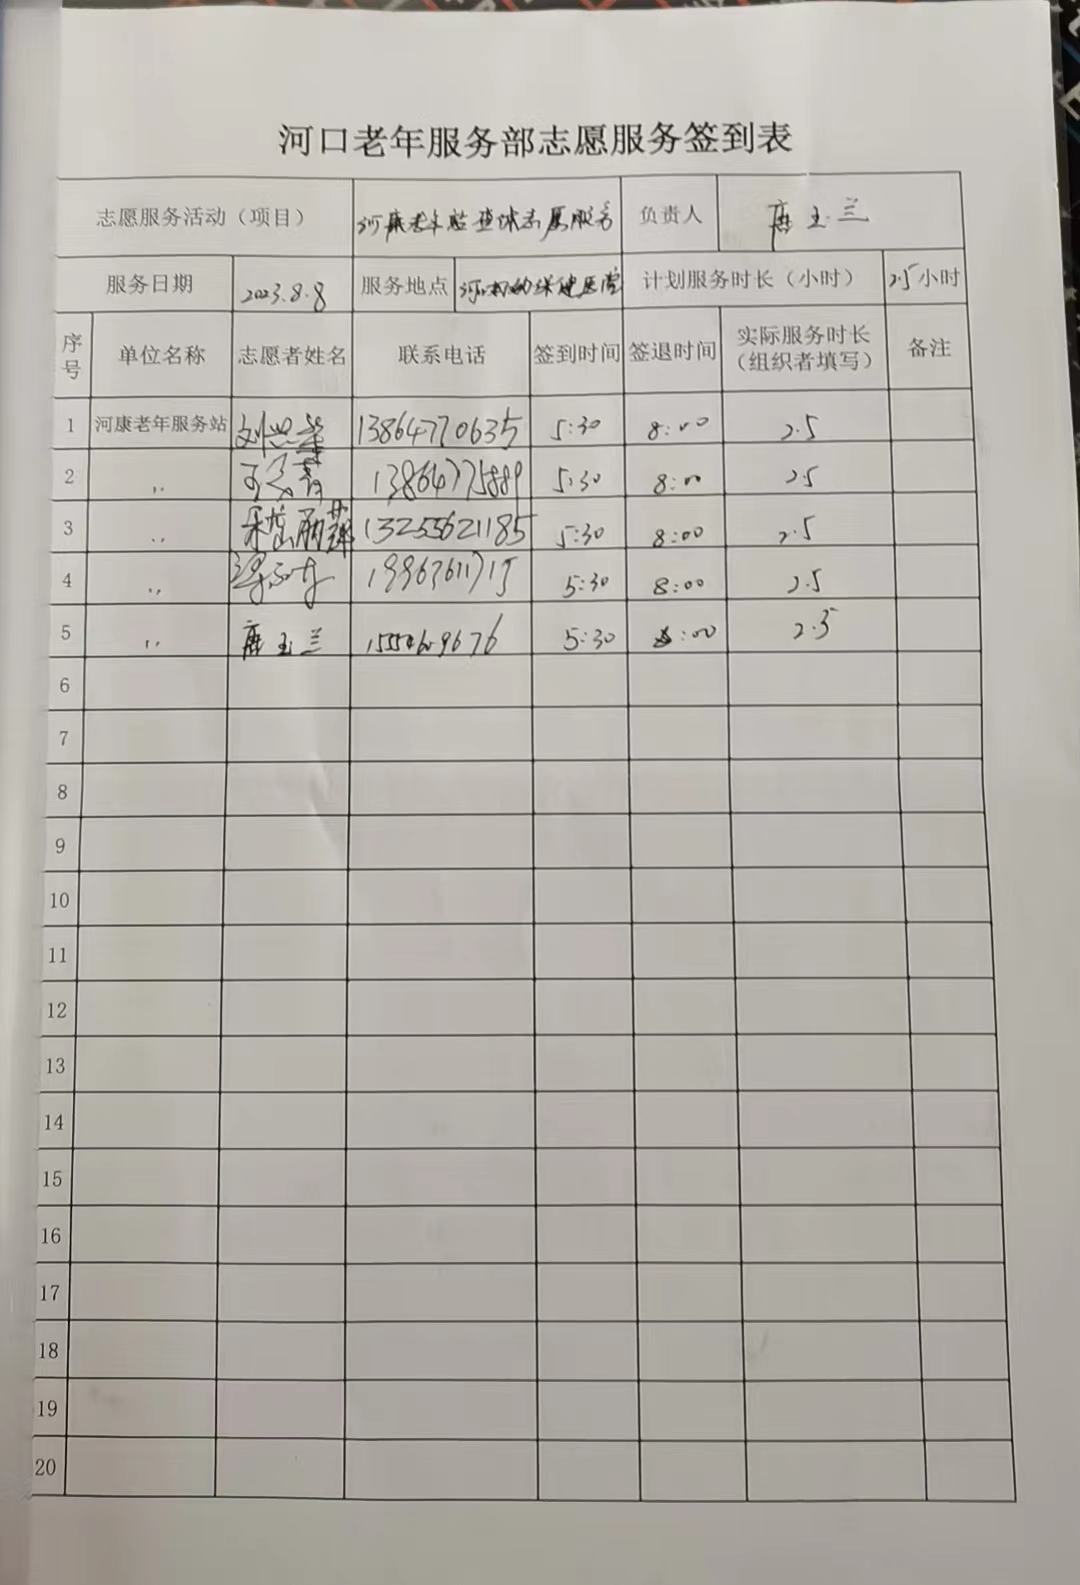 河口老年服务部志愿服务签到表
志愿服务活动（项目） 河康老年站 志愿服务 负责人 唐玉兰
服务日期 2023.8.8 服务地点 保健医院 计划服务时长（小时） 2.5小时
序号 单位名称 志愿者姓名 联系电话 签到时间 签退时间 实际服务时长（组织者填写） 备注
1 河康老年服务站 13864770635 5:30 8:00 2.5
2 〃 13864775889 5:30 8:00 2.5
3 〃 13255621185 5:30 8:00 2.5
4 〃 5:30 8:00 2.5
5 〃 唐玉兰 5:30 8:00 2.5
6
7
8
9
10
11
12
13
14
15
16
17
18
19
20